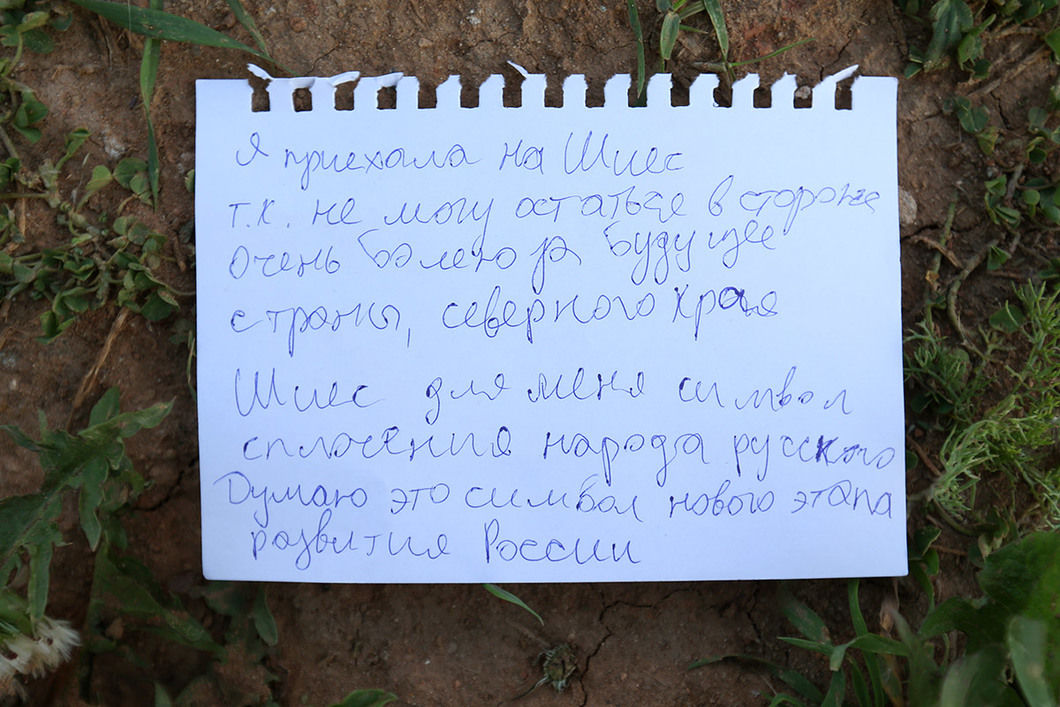 Я приехала на Шиес
т.к. не могу остаться в стороне
очень болею за будущее
страны, северного края
Шиес для меня символ
сплочения народа русского
Думаю это символ нового этапа
развития России